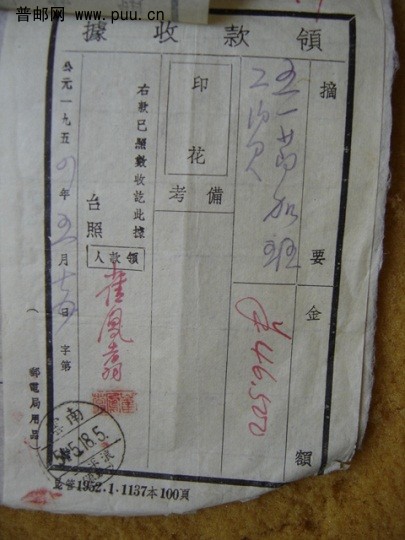 普邮网 www.puu.cn
領款收據
摘要
五一节加班
工资
金額
￥46.500
印花
備考
右款已照數收訖此據
台照
領款人
崔鳳翥
公元一九五四年五月 日 字第
(郵電局用品)
南
54.5.18.5.
1952.1.1137本100頁